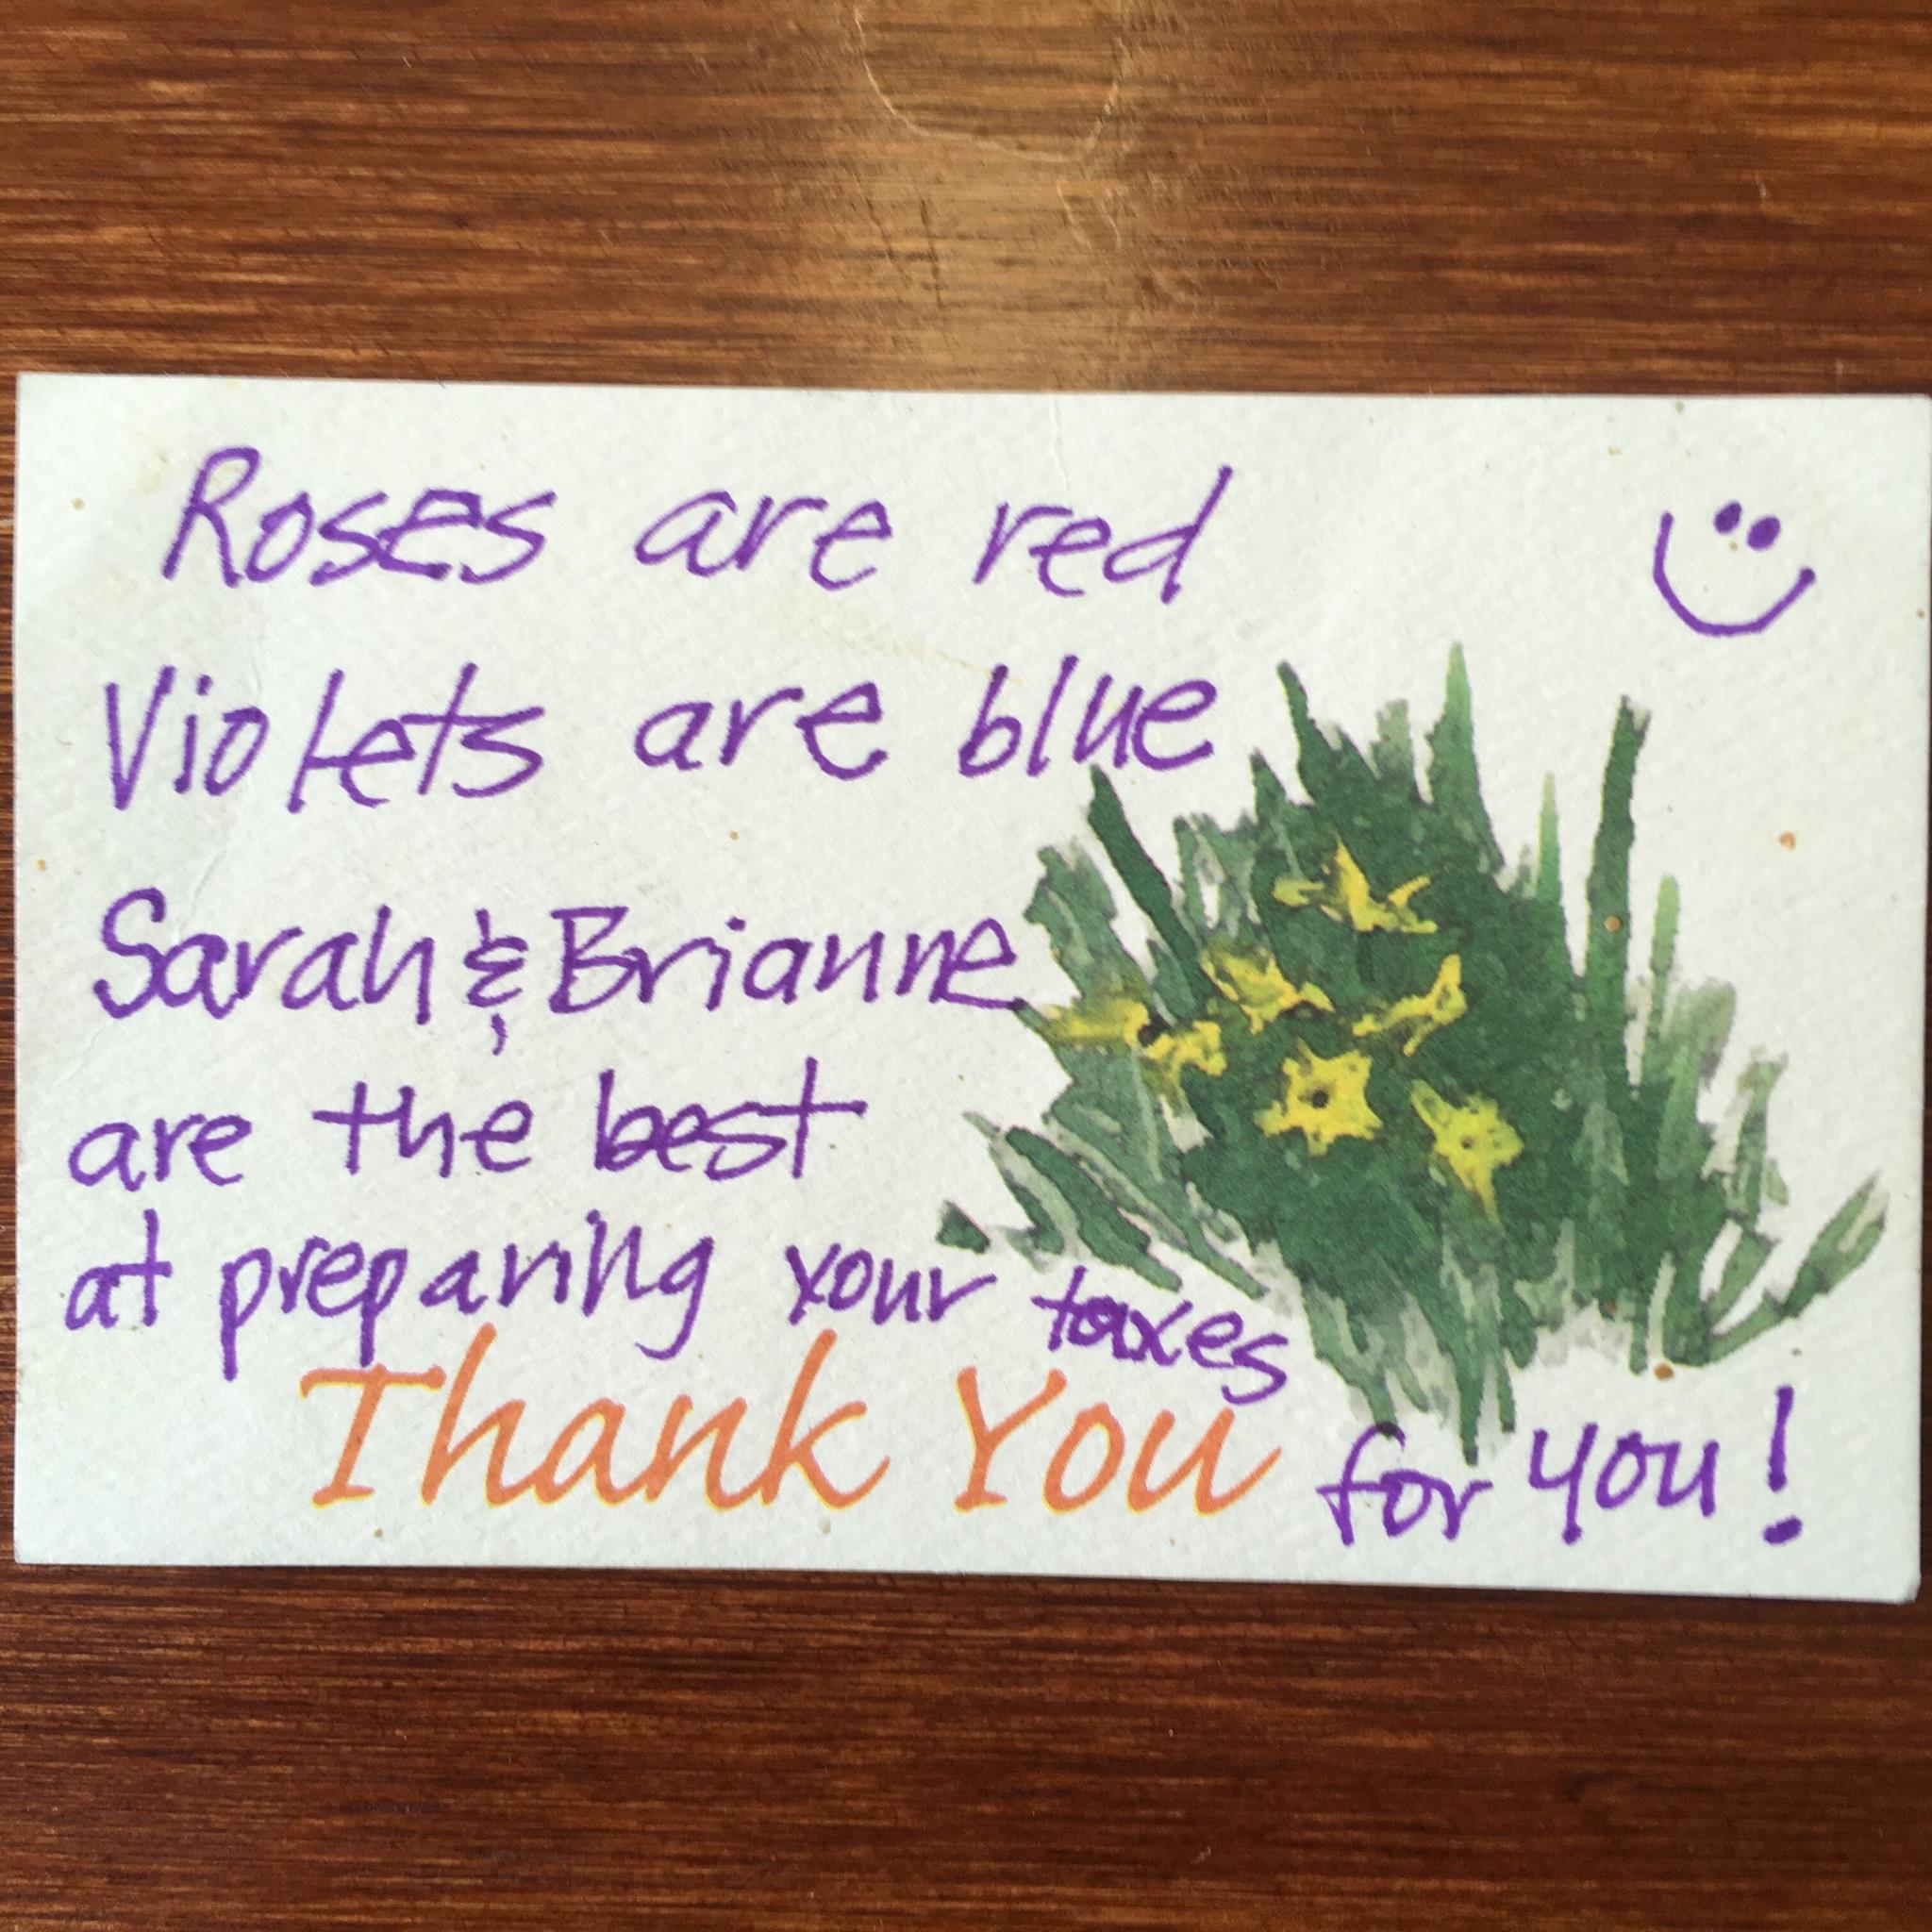 Roses are red
Violets are blue
Sarah & Brianne
are the best
at preparing your taxes
for you!
Thank You